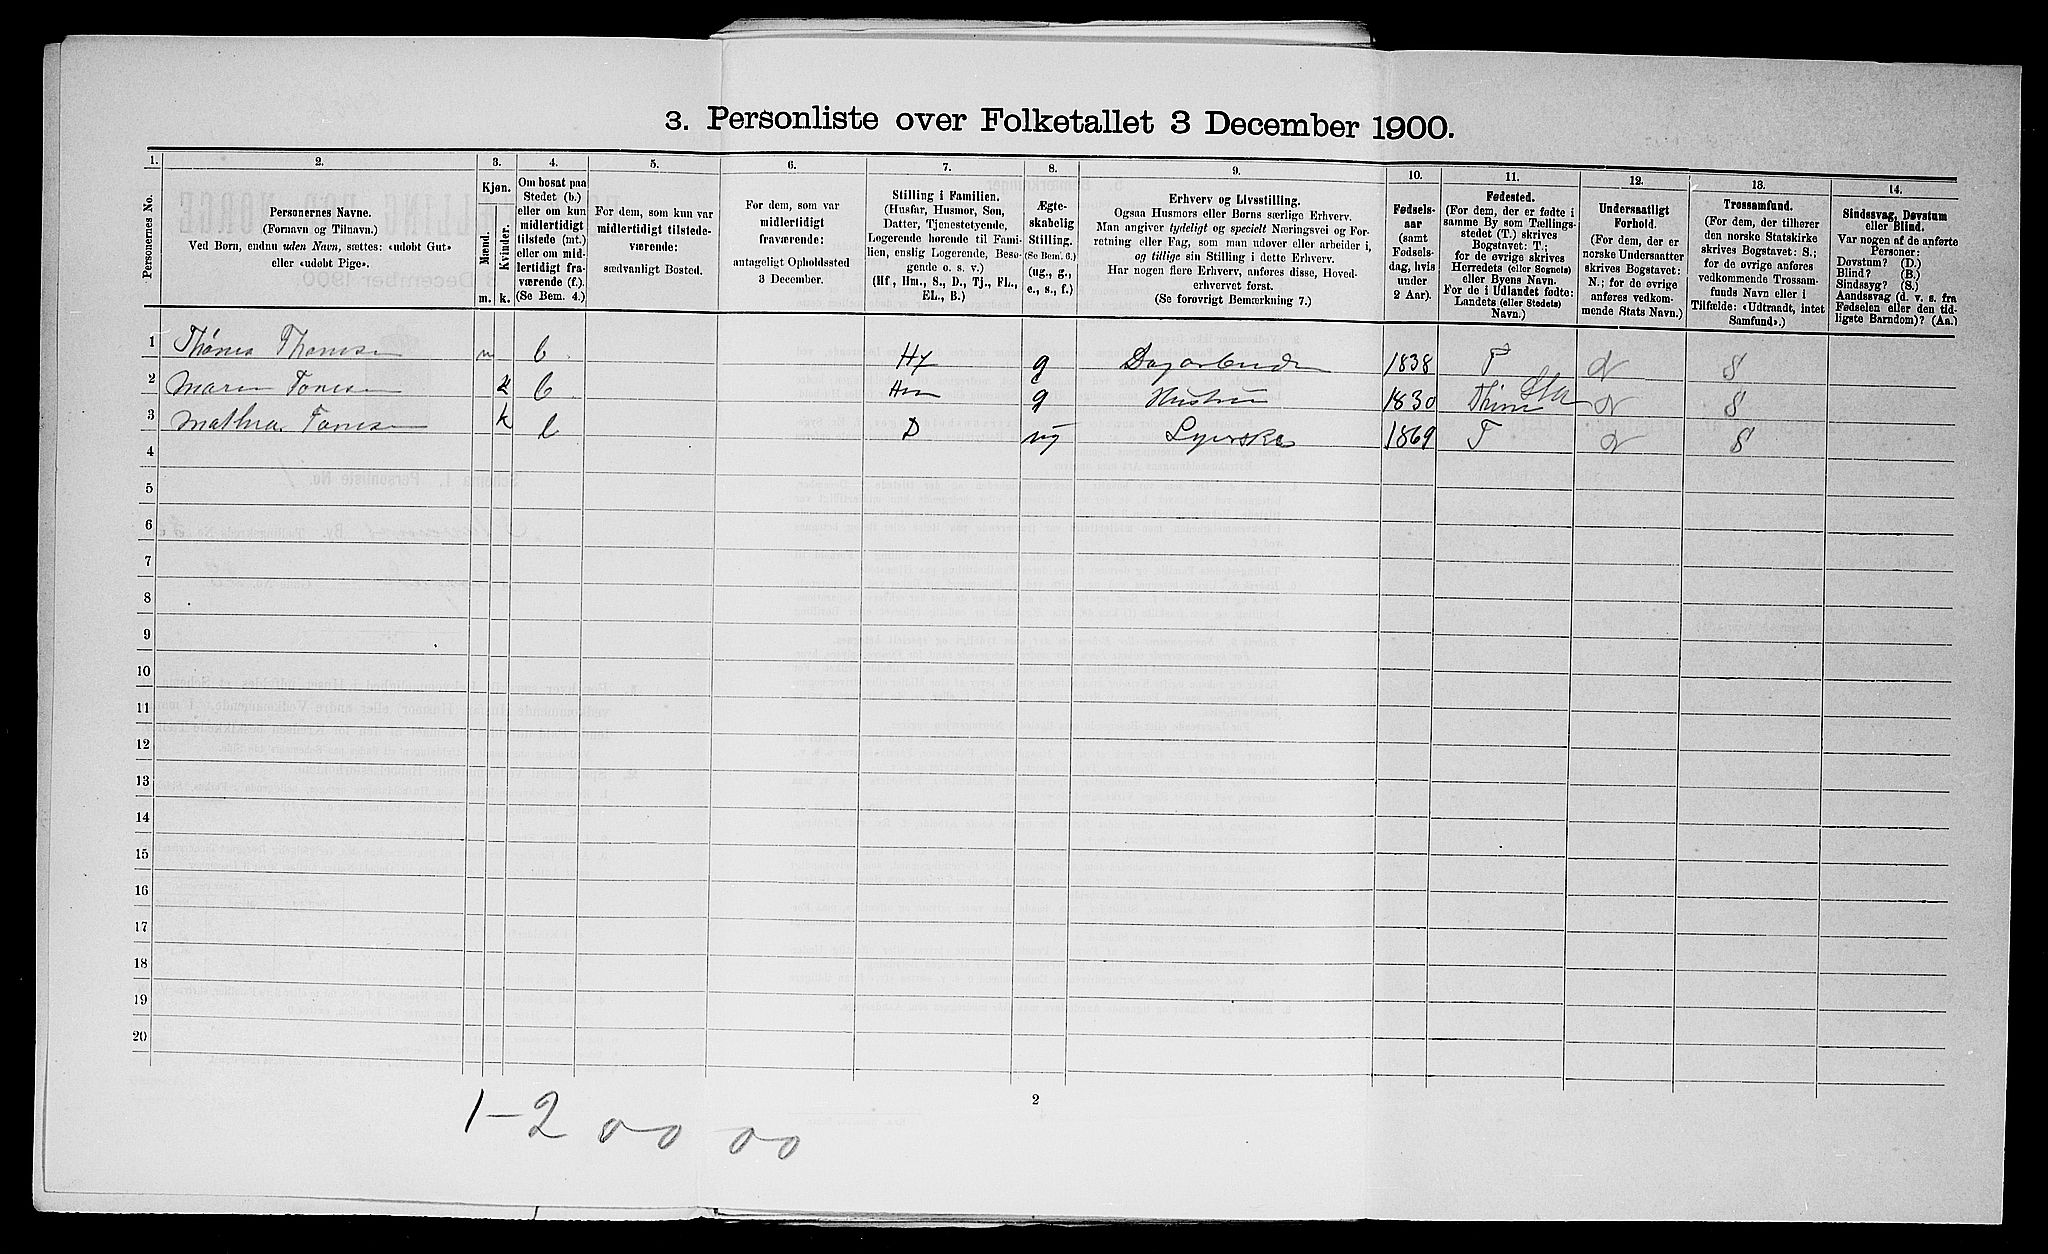 3. Personliste over Folketallet 3 December 1900.
1. 2. 3. 4. 5. 6. 7. 8. 9. 10. 11. 12. 13. 14.
Personernes No.
Personernes Navne.
(Fornavn og Tilnavn.)
Ved Børn, endnu uden Navn, sættes: «udøbt Gut»
eller «udøbt Pige».
Kjøn.
Mænd.
Kvinder.
m. k.
Om bosat paa
Stedet (b.)
eller om kun
midlertidigt
tilstede (mt.)
eller om mid-
lertidigt fra-
værende (f.)
(Se Bem. 4.)
For dem, som kun var
midlertidigt tilstede-
værende:
sædvanligt Bosted.
For dem, som var
midlertidigt
fraværende:
antageligt Opholdssted
3 December.
Stilling i Familien.
(Husfar, Husmor, Søn,
Datter, Tjenestetyende,
Logerende hørende til Fami-
lien, enslig Logerende, Besø-
gende o. s. v.)
(Hf., Hm., S., D., Tj., FL.,
EL., B.)
Ægte-
skabelig
Stilling.
(Se Bem. 6.)
(ug., g.,
e., s., f.)
Erhverv og Livsstilling.
Ogsaa Husmors eller Børns særlige Erhverv.
Man angiver tydeligt og specielt Næringsvei og For-
retning eller Fag, som man udøver eller arbeider i,
og tillige sin Stilling i dette Erhverv.
Har nogen flere Erhverv, anføres disse, Hoved-
erhvervet først.
(Se forøvrigt Bemærkning 7.)
Fødsels-
aar
(samt
Fødsels-
dag, hvis
under
2 Aar).
Fødested.
(For dem, der er fødte i
samme By som Tællings-
stedet (T.) skrives
Bogstavet: T.;
for de øvrige skrives
Herredets (eller Sognets)
eller Byens Navn.
For de i Udlandet fødte:
Landets (eller Stedets)
Navn.)
Undersaatligt
Forhold.
(For dem, der er
norske Undersaatter
skrives Bogstavet:
N.; for de øvrige
anføres vedkom-
mende Stats Navn.)
Trossamfund.
(For dem, der tilhører
den norske Statskirke
skrives Bogstavet: S.;
for de øvrige anføres
vedkommende Trossam-
funds Navn eller i
Tilfælde: «Udtraadt, intet
Samfund».)
Sindssvag, Døvstum
eller Blind.
Var nogen af de anførte
Personer:
Døvstum? (D.)
Blind? (B.)
Sindssyg? (S.)
Aandssvag (d. v. s. fra
Fødselen eller den tid-
ligste Barndom)? (Aa.)
1 Thomsen m b Hf g 1838 T N S
2 Maren Tomesen k b Hm g Hustru 1830 N S
3 Tomesen k b D ug Syerske 1869 T N S
4
5
6
7
8
9
10
11
12
13
14
15
16
17
18
19
20
1-2 00 00
2